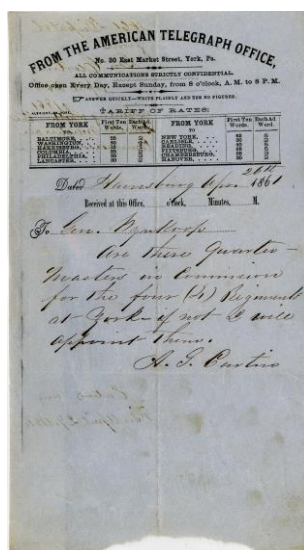 FROM THE AMERICAN TELEGRAPH OFFICE,
No. 20 East Market Street, York, Pa.
ALL COMMUNICATIONS STRICTLY CONFIDENTIAL.
Office open Every Day, Except Sunday, from 8 o'clock, A. M. to 8 P. M.
ANSWER QUICKLY—WRITE PLAINLY AND USE NO FIGURES.
TARIFF OF RATES:
FROM YORK TO First Ten Words. Each Ad Word. FROM YORK TO First Ten Words. Each Ad Word.
BALTIMORE, NEW YORK,
WASHINGTON, CARLISLE,
HARRISBURG, READING,
COLUMBIA, PITTSBURG,
PHILADELPHIA, CHAMBERSBURG,
LANCASTER, HANOVER,
Dated Harrisburg Apr. 26th 1861
Received at this Office, o'clock, Minutes, M.
To Gen. Wynkoop
Are there Quarter
Masters in Commission
for the four (4) Regiments
at York if not I will
appoint them.
A. G. Curtin